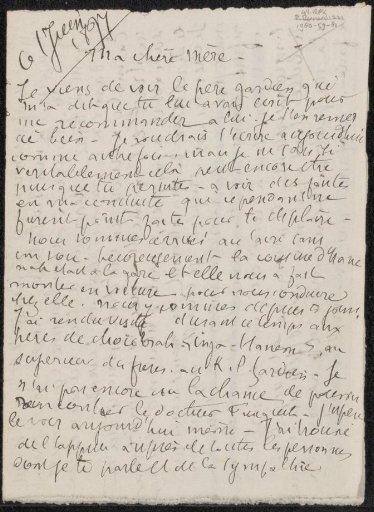 6 Juin 1897
Ma chère Mère -
Je viens de voir le père gardien qui
m'a dit que tu lui avais écrit pour
me recommander à lui. je t'en remer
cie bien - Je voudrais t'écrire aujourd'hui
comme autrefois - mais je ne sais si
véritablement cela peut encore être
puisque tu persistes - à voir des fautes
en ma conduite que cependant ne
furent point faite pour te déplaire -
nous sommes arrivés au Caire sans
un sou - heureusement la cousine d'Hane
nah était à la gare et elle nous a fait
monter en voiture pour nous conduire
chez elle. nous y sommes depuis jours
J'ai rendu visite durant ce temps aux
pères de au
supérieur des frères - au R. P. Gardien - Je
n'ai pas encore eu la chance de pouvoir
rencontrer le docteur Fouquet - J'espère
le voir aujourd'hui même - J'ai trouvé
de l'appui auprès de toutes les personnes
dont je te parle et de la sympathie